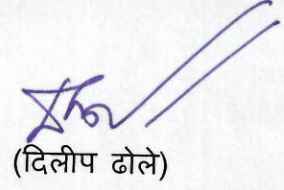 (दिलीप ढोले)